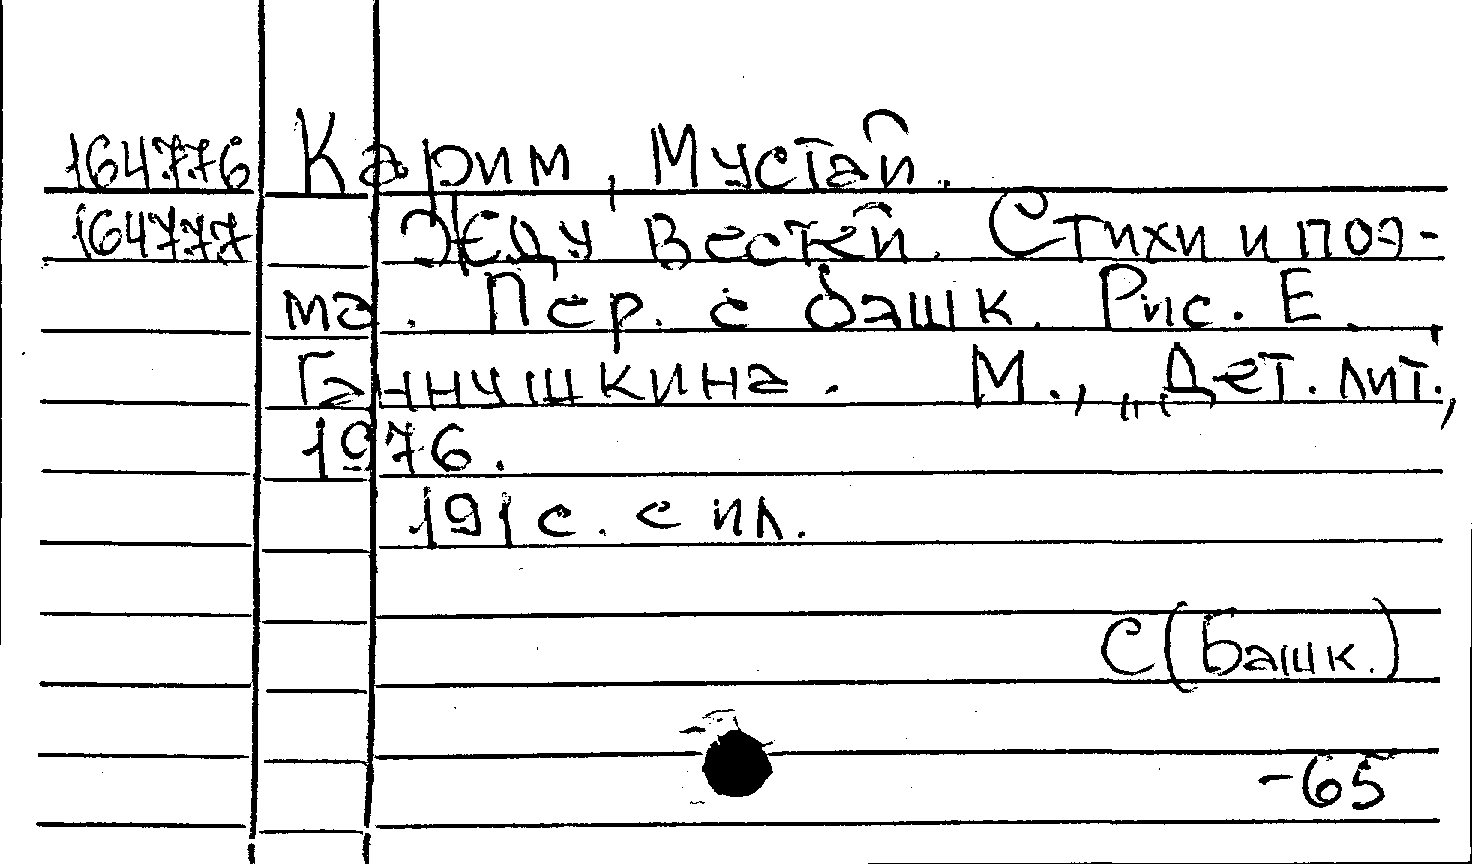 164776 Карим, Мустай.
164777 Жду вестей. Стихи и поэ-
ма. Пер. с башк. Рис. Е.
Ганнушкина. М., „Дет. лит.",
1976.
191 с. с ил.
С(Башк.)
-65